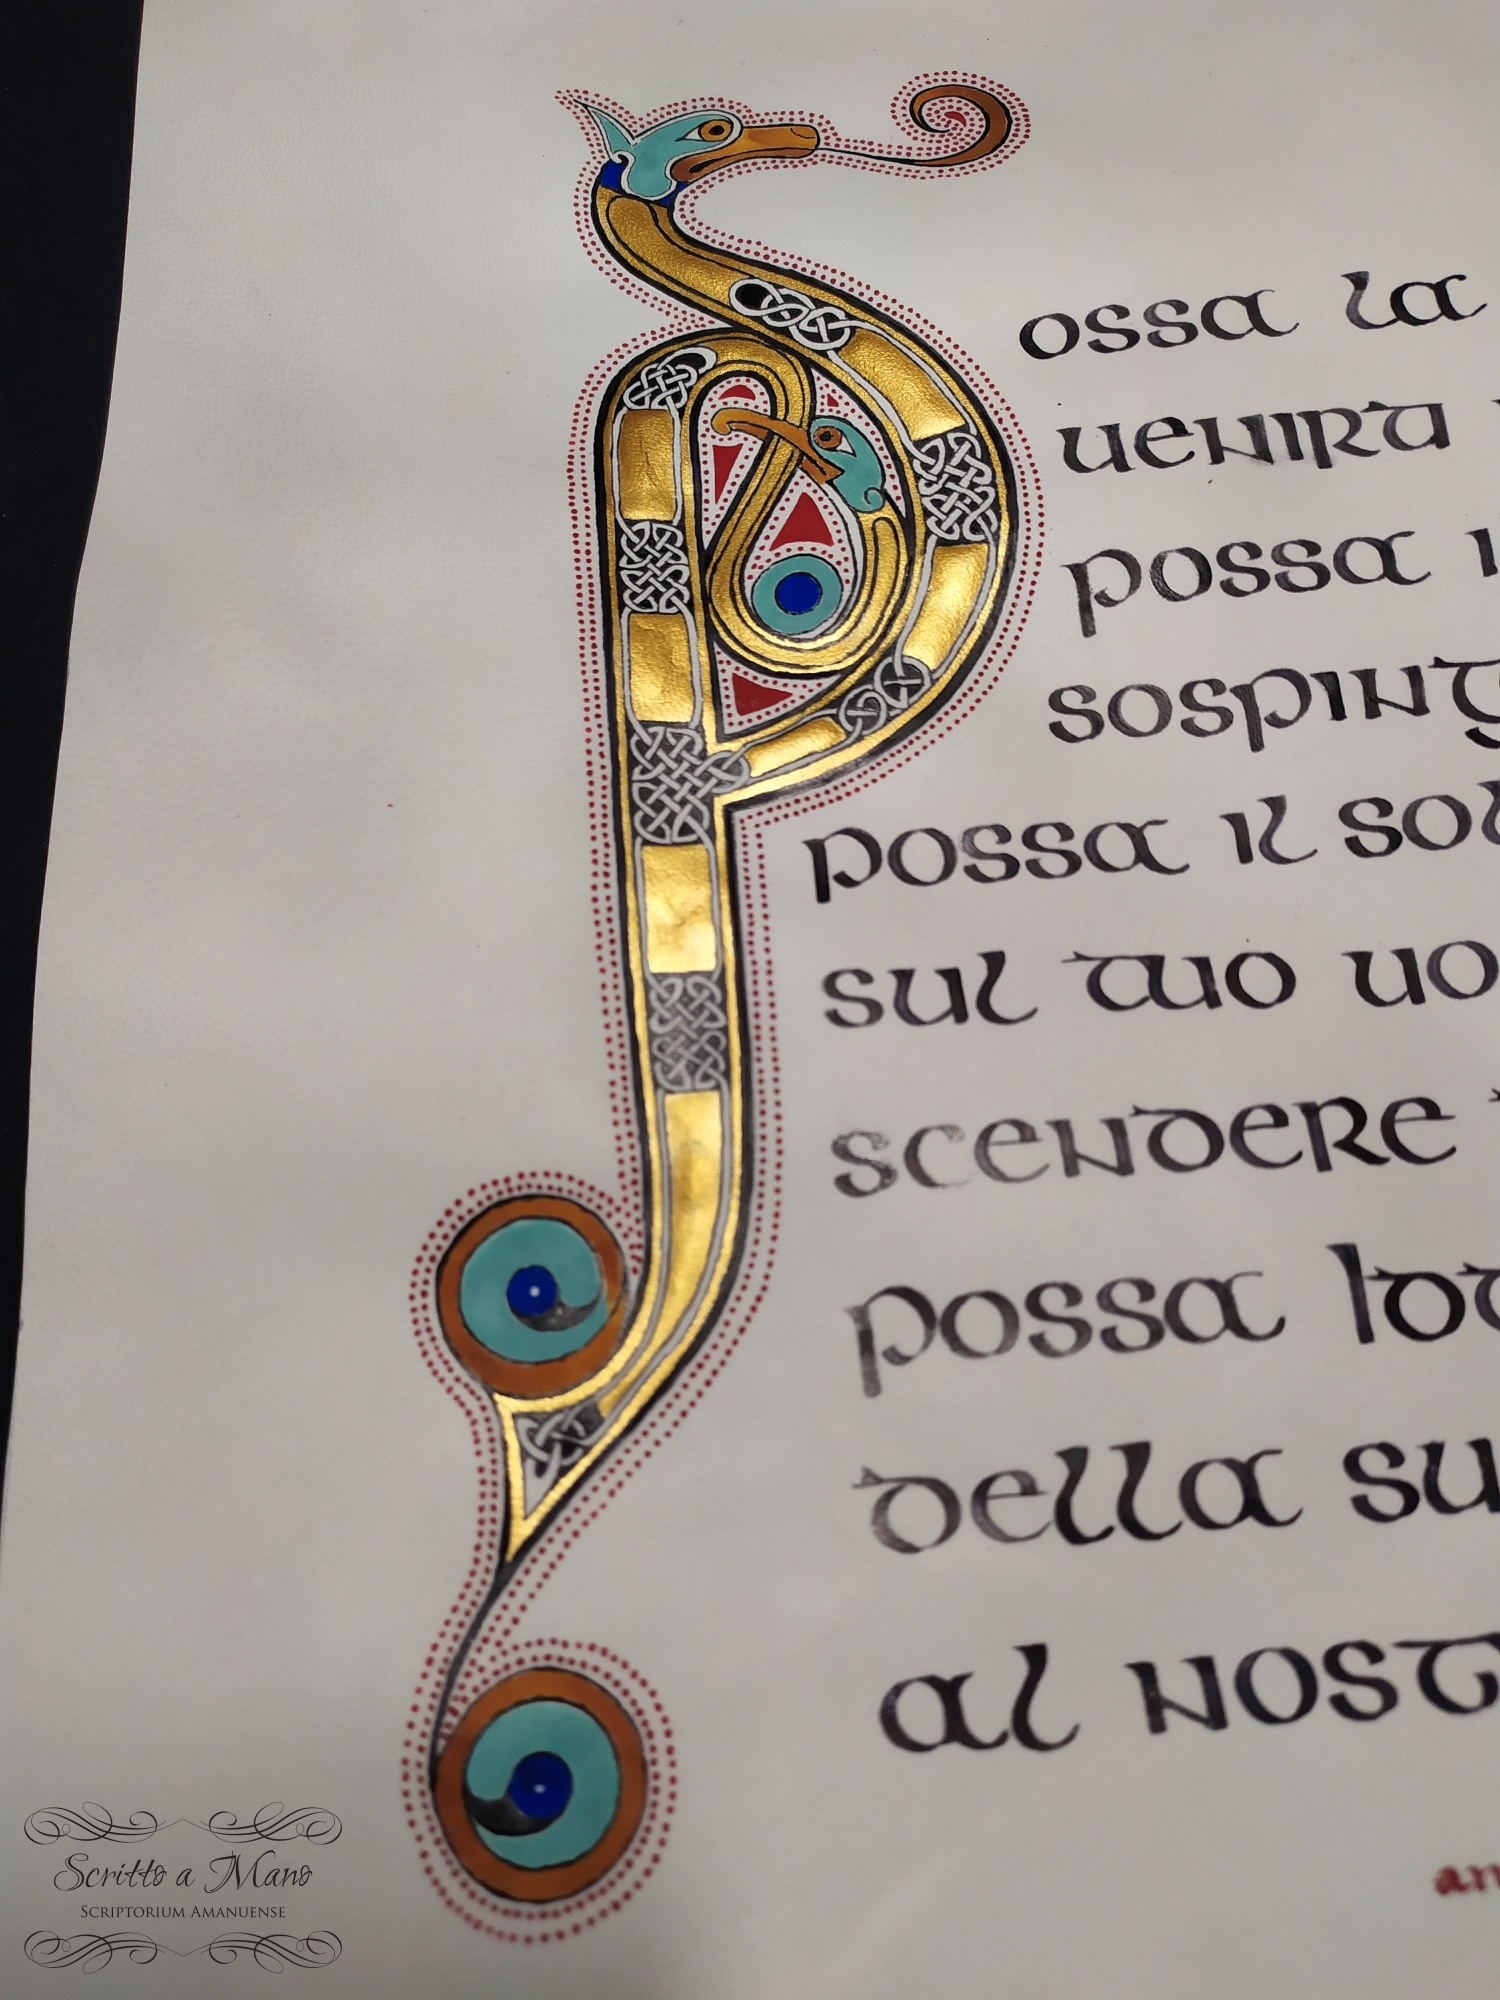 Possa la
venirti
possa i
sosping
possa il sol
sul tuo vo
scendere
possa Idd
della su
al nost
an
Scritto a Mano
Scriptorium Amanuense